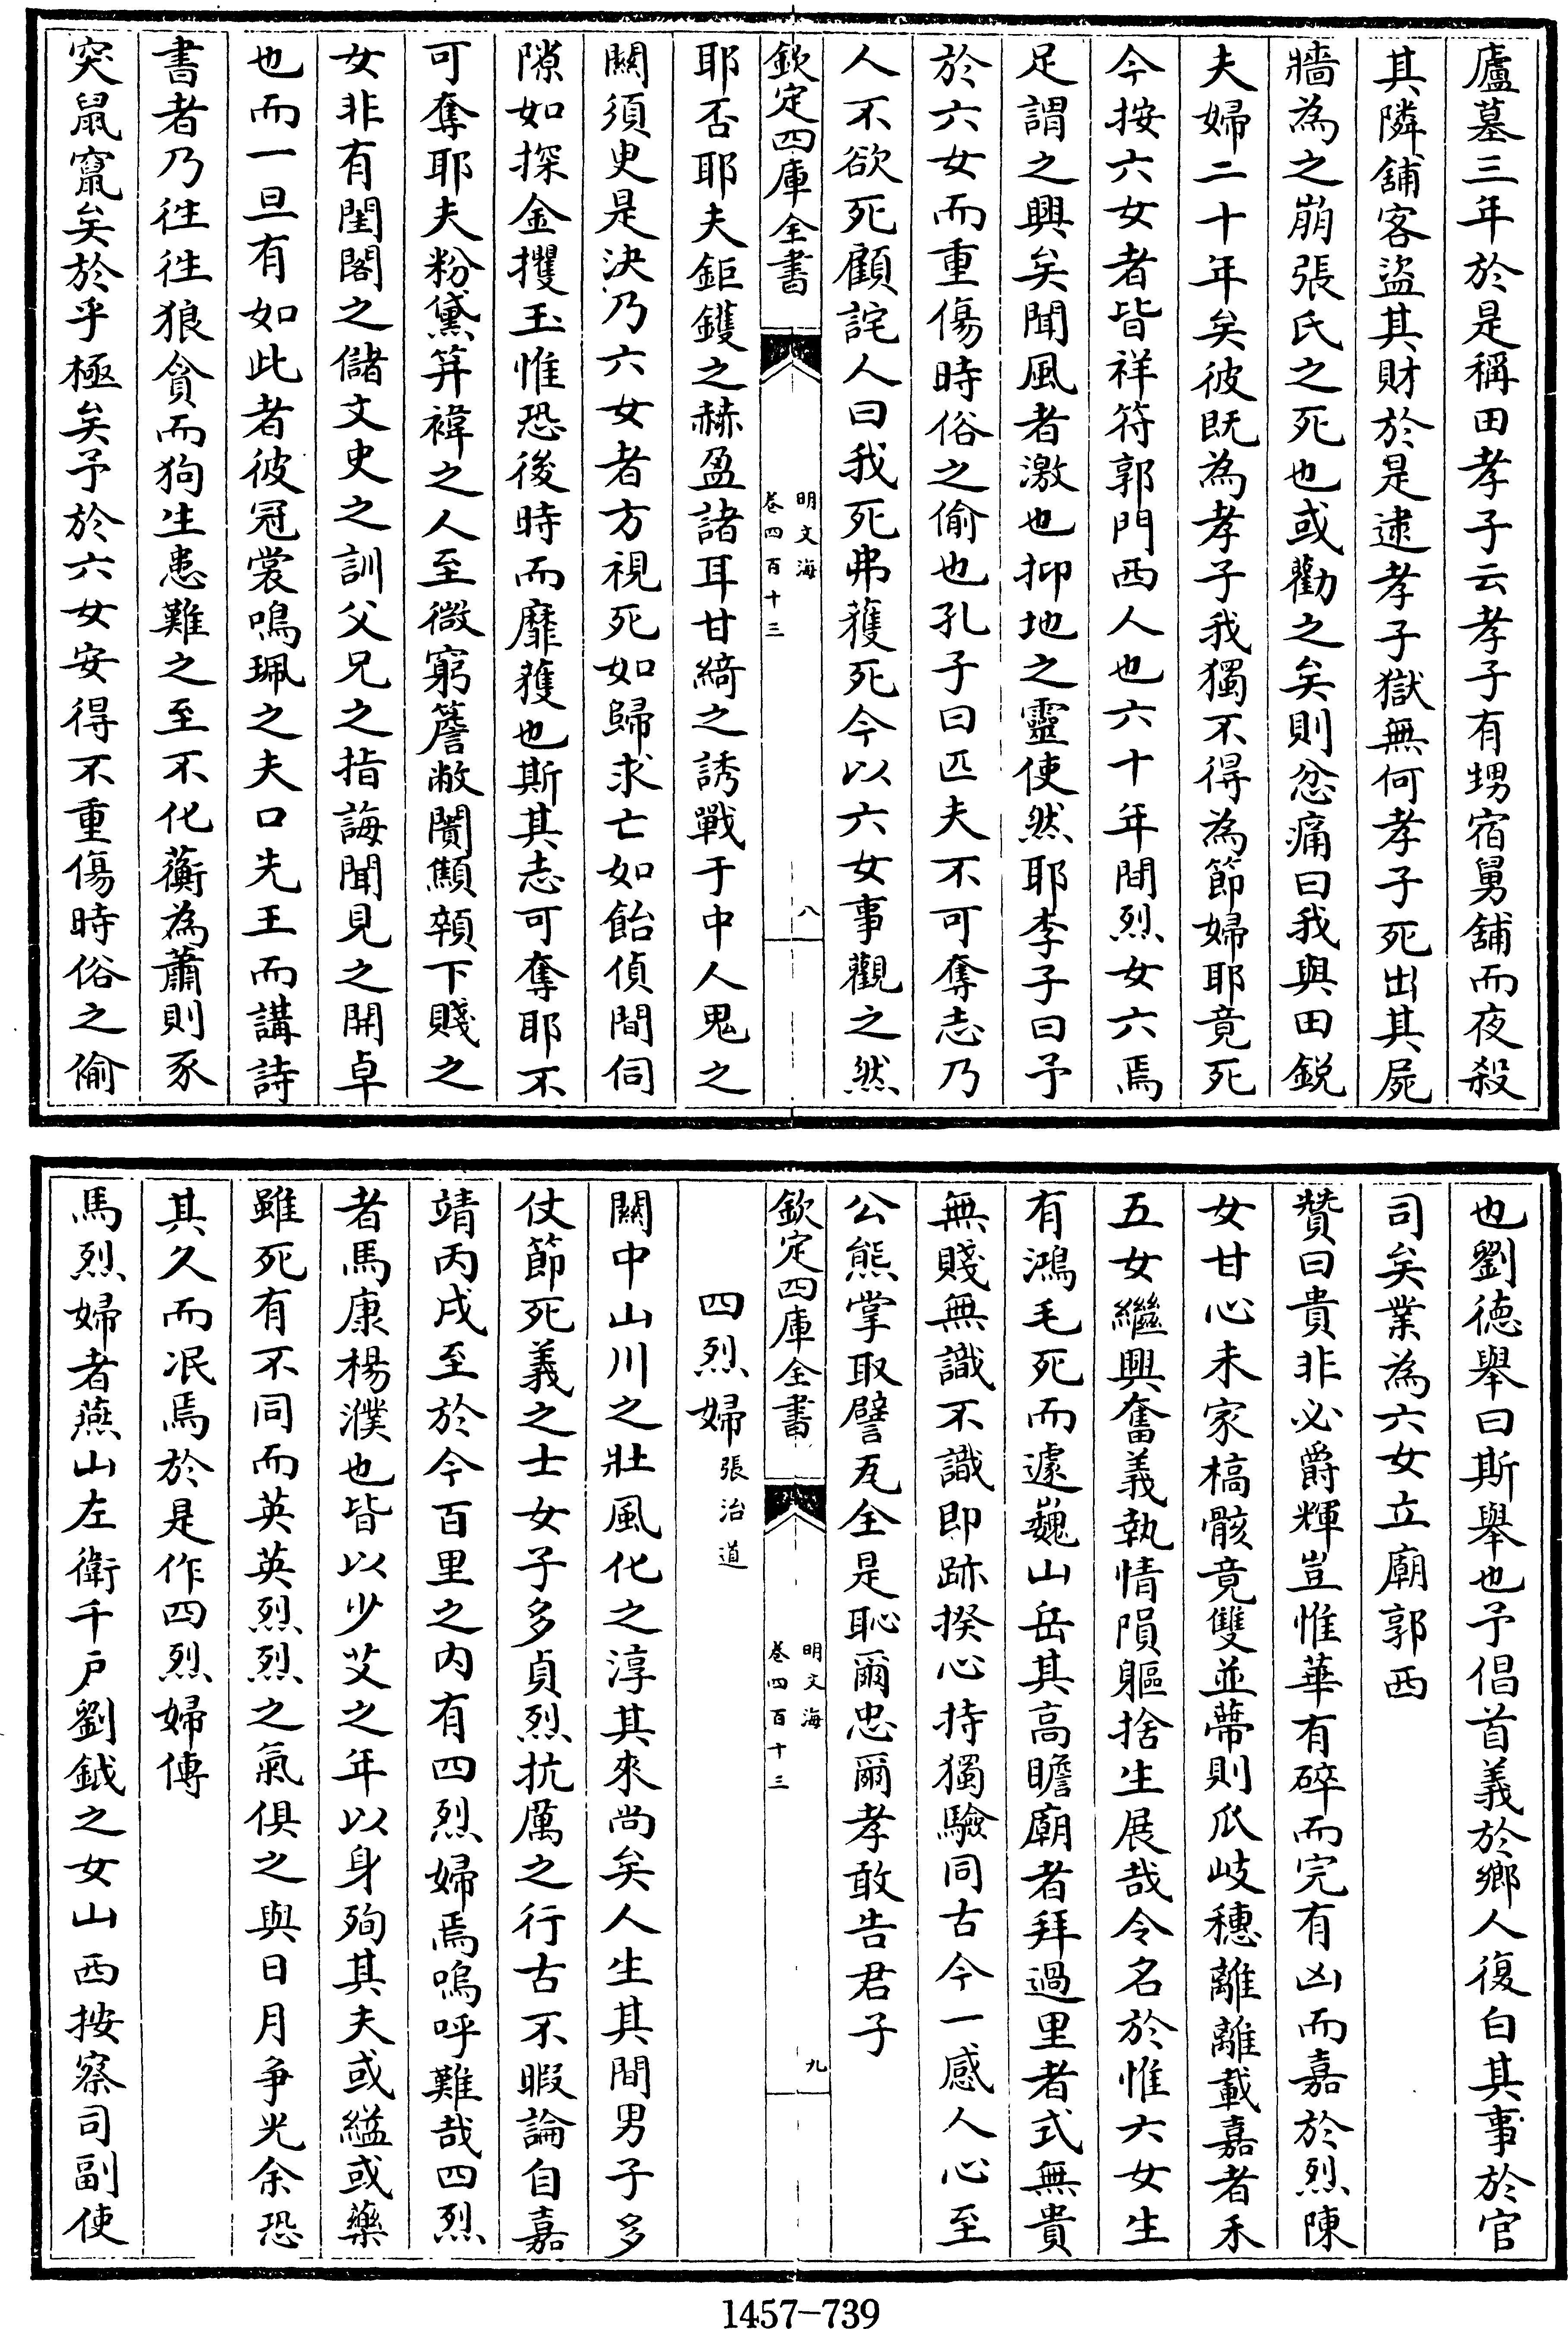 廬墓三年於是稱田孝子云孝子有甥宿舅舖而夜殺
其隣舖客盜其財於是逮孝子獄無何孝子死出其屍
牆為之崩張氏之死也或勸之矣則忿痛曰我與田鋭
夫婦二十年矣彼既為孝子我獨不得為節婦耶竟死
今按六女者皆祥符郭門西人也六十年間烈女六焉
足謂之興矣聞風者激也抑地之靈使然耶李子曰予
於六女而重傷時俗之偷也孔子曰匹夫不可奪志乃
人不欲死顧詫人曰我死弗獲死今以六女事觀之然
欽定四庫全書
明文海
卷四百十三
八
耶否耶夫鉅鑊之赫盈諸耳甘綺之誘戰于中人鬼之
關須臾是決乃六女者方視死如歸求亡如飴偵間伺
隙如探金攫玉惟恐後時而靡獲也斯其志可奪耶不
可奪耶夫粉黛笄褘之人至微窮簷敝闠顒頯下賤之
女非有閨閣之儲文史之訓父兄之指誨聞見之開卓
也而一旦有如此者彼冠裳鳴珮之夫口先王而講詩
書者乃徃徃狼貪而狗生患難之至不化蘅為蕭則豕
突鼠竄矣於乎極矣予於六女安得不重傷時俗之偷
也劉德舉曰斯舉也予倡首義於鄉人復白其事於官
司矣業為六女立廟郭西
贊曰貴非必爵輝豈惟華有碎而完有凶而嘉於烈陳
女甘心未家槁骸竟雙並蔕則瓜岐穗離離載嘉者禾
五女繼興奮義執情隕軀捨生展哉令名於惟六女生
有鴻毛死而遽巍山岳其高瞻廟者拜過里者式無貴
無賤無識不識即跡揆心持獨驗同古今一感人心至
公熊掌取譬瓦全是恥爾忠爾孝敢告君子
欽定四庫全書
明文海
卷四百十三
九
四烈婦張治道
關中山川之壯風化之淳其來尚矣人生其間男子多
仗節死義之士女子多貞烈抗厲之行古不暇論自嘉
靖丙戌至於今百里之内有四烈婦焉嗚呼難哉四烈
者馬康楊濮也皆以少艾之年以身殉其夫或縊或藥
雖死有不同而英英烈烈之氣俱之與日月争光余恐
其久而泯焉於是作四烈婦傳
馬烈婦者燕山左衛千戶劉鉞之女山西按察司副使
1457-739